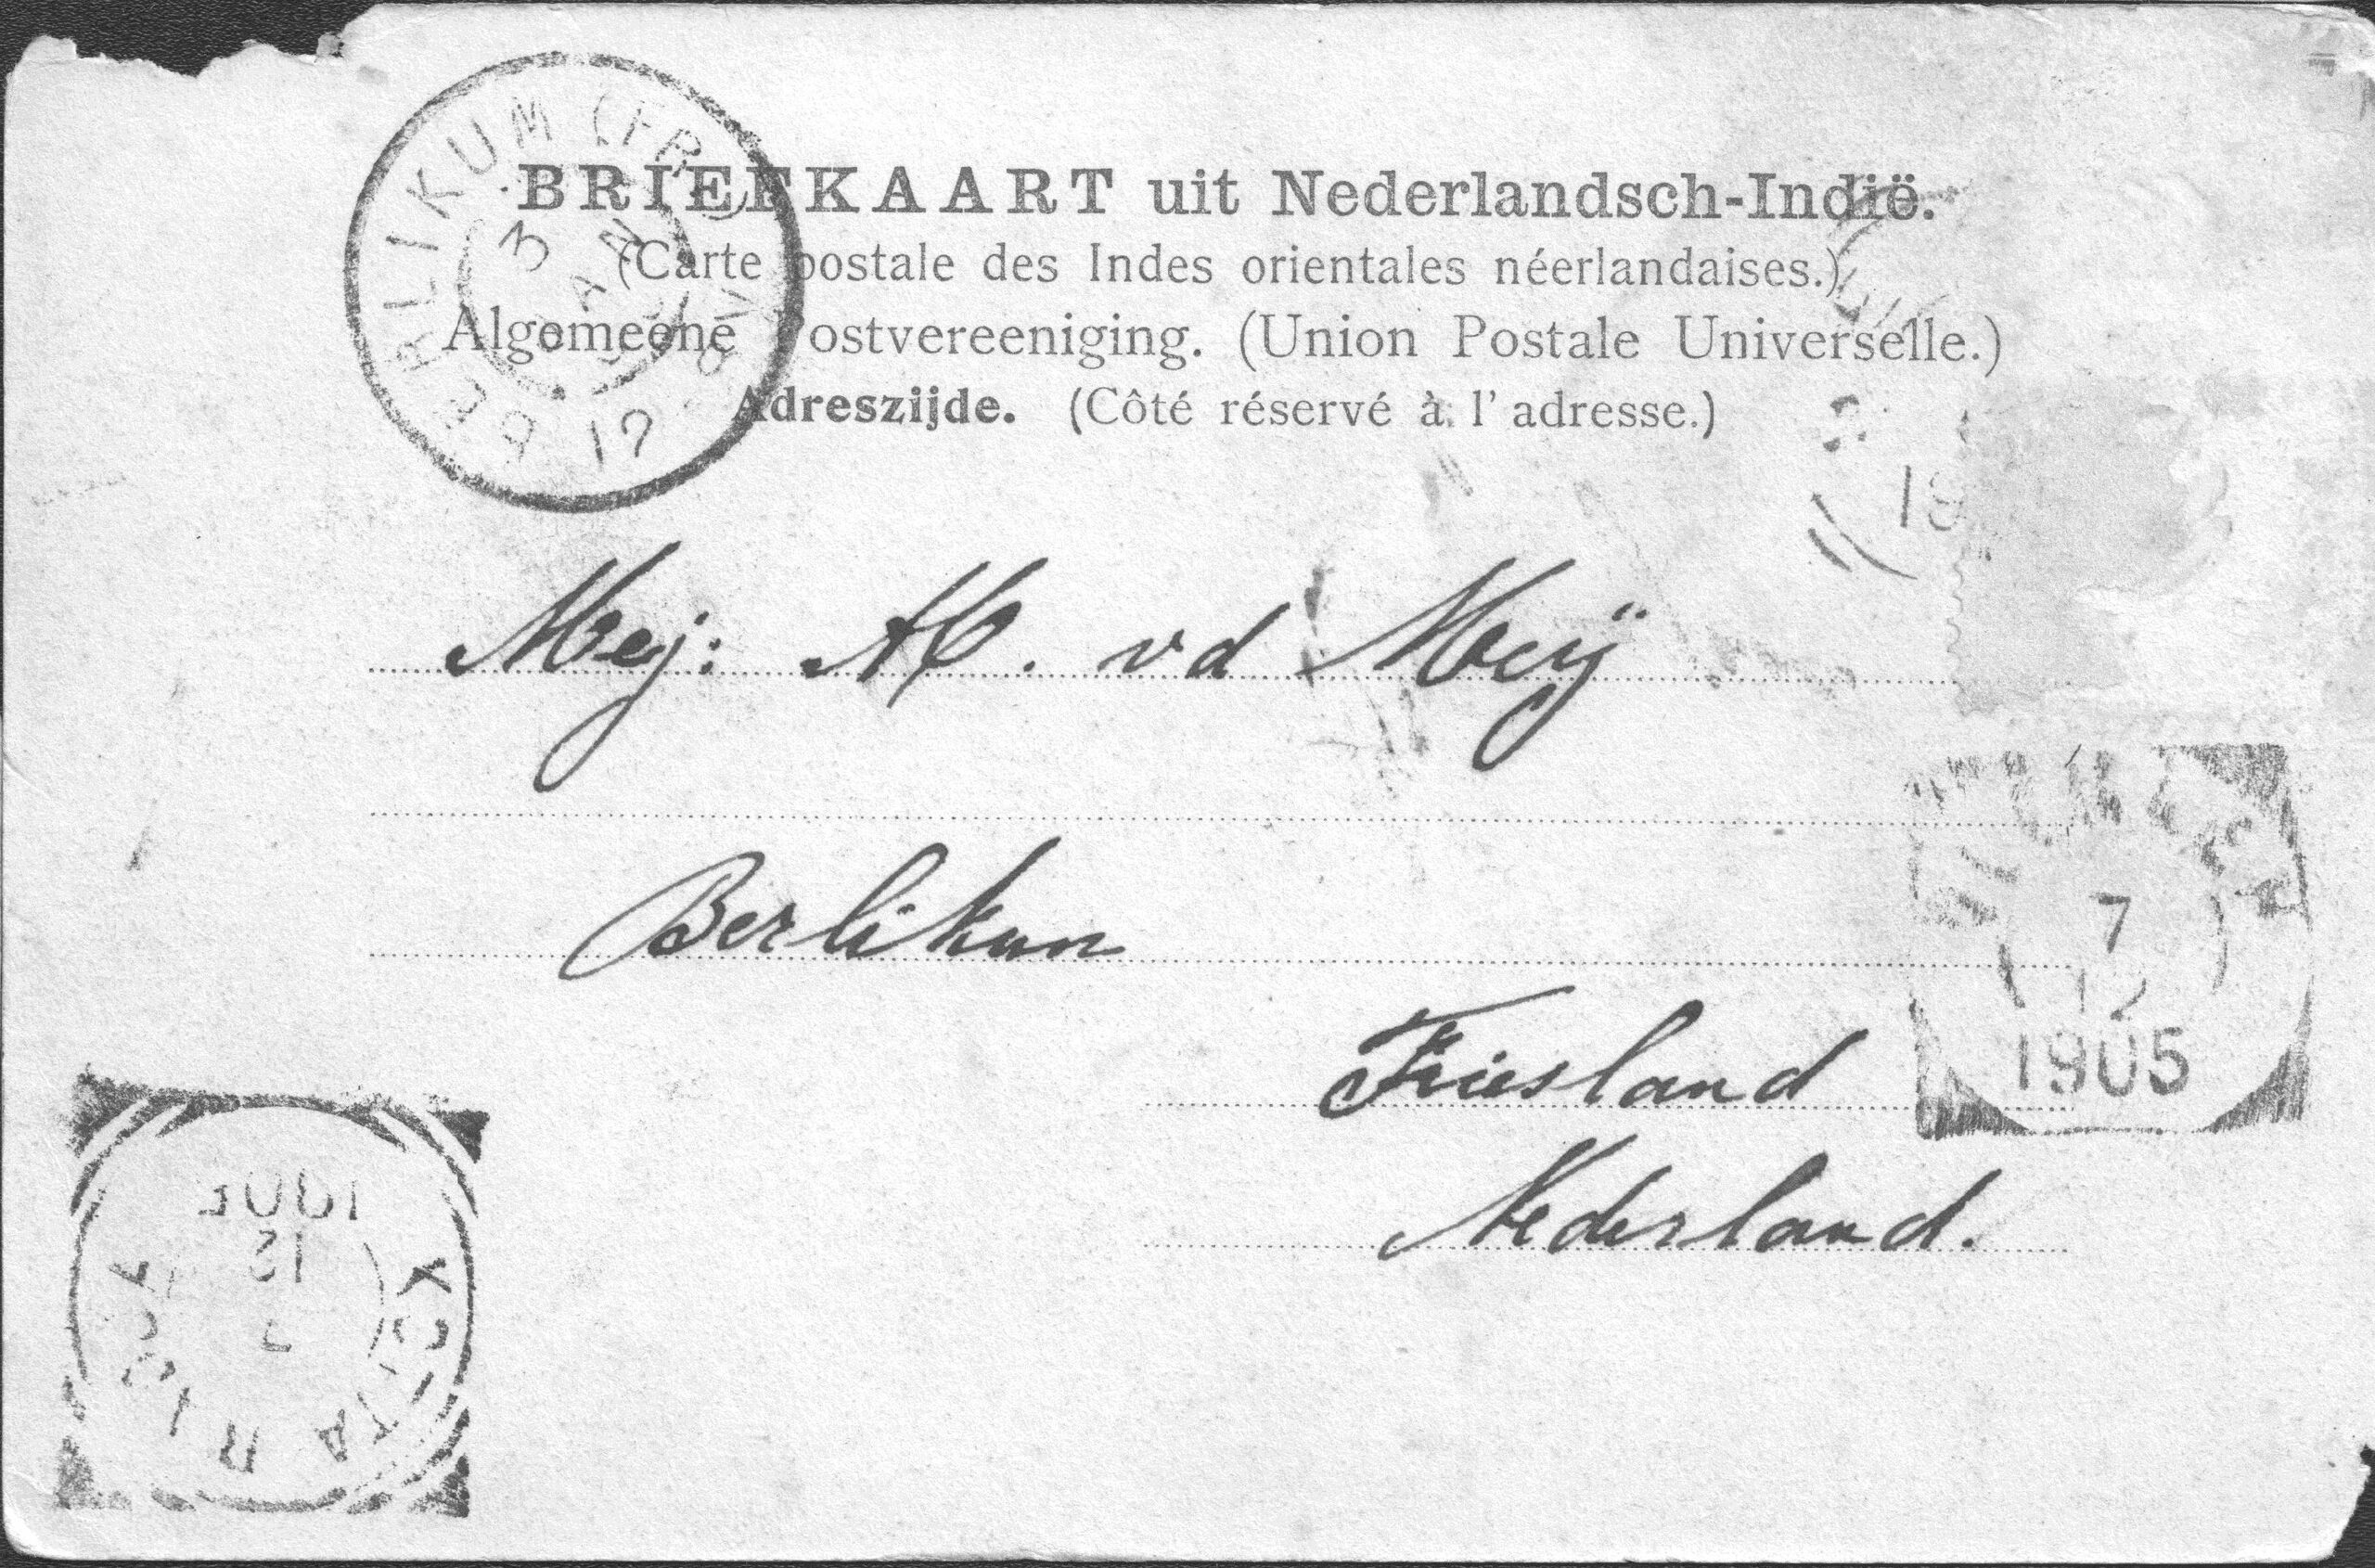 BRIEFKAART uit Nederlandsch-Indië.
(Carte postale des Indes orientales néerlandaises.)
Algemeene Postvereeniging. (Union Postale Universelle.)
Adreszijde. (Côté réservé à l'adresse.)
BERLIKUM (FR
3 JAN
19
Mej: M. vd Meÿ
Berlikum
Friesland
7
12
1905
Nederland.
12
7